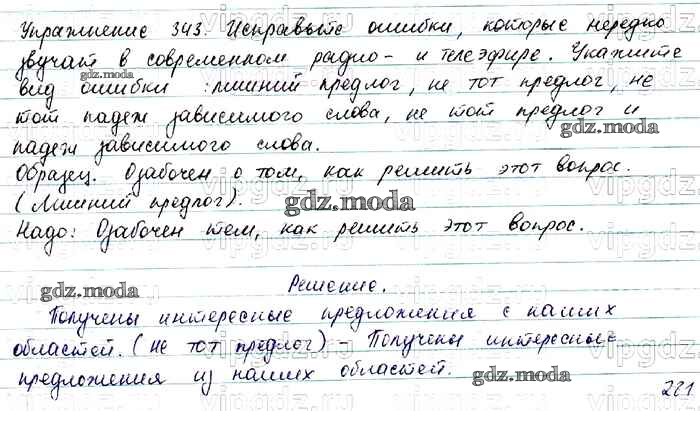 Упражнение 343. Исправьте ошибки, которые нередко
звучат в современном радио- и телеэфире. Укажите
gdz.moda
вид ошибки : лишний предлог, не тот предлог, не
тот падеж зависимого слова, не тот предлог и
gdz.moda
падеж зависимого слова.
Образец. Озабочен о том, как решить этот вопрос.
(Лишний предлог).
gdz.moda
Надо: Озабочен тем, как решить этот вопрос.
Решение.
gdz.moda
Получены интересные предложения с наших
областей. (не тот предлог) - Получены интересные
предложения из наших областей.
gdz.moda
221